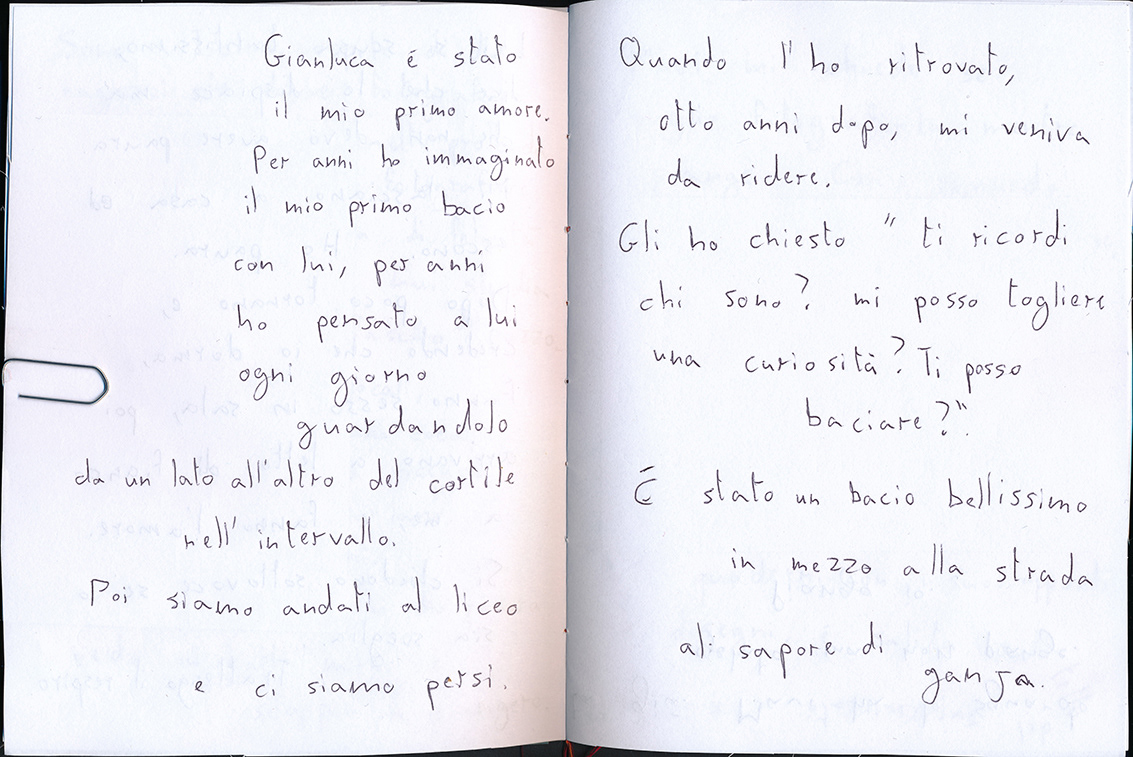 Gianluca é stato
il mio primo amore.
Per anni ho immaginato
il mio primo bacio
con lui, per anni
ho pensato a lui
ogni giorno
guardandolo
da un lato all'altro del cortile
nell'intervallo.
Poi siamo andati al liceo
e ci siamo persi.
Quando l'ho ritrovato,
otto anni dopo, mi veniva
da ridere.
Gli ho chiesto "ti ricordi
chi sono? mi posso togliere
una curiosità? Ti posso
baciare?".
É stato un bacio bellissimo
in mezzo alla strada
al sapore di
ganja.